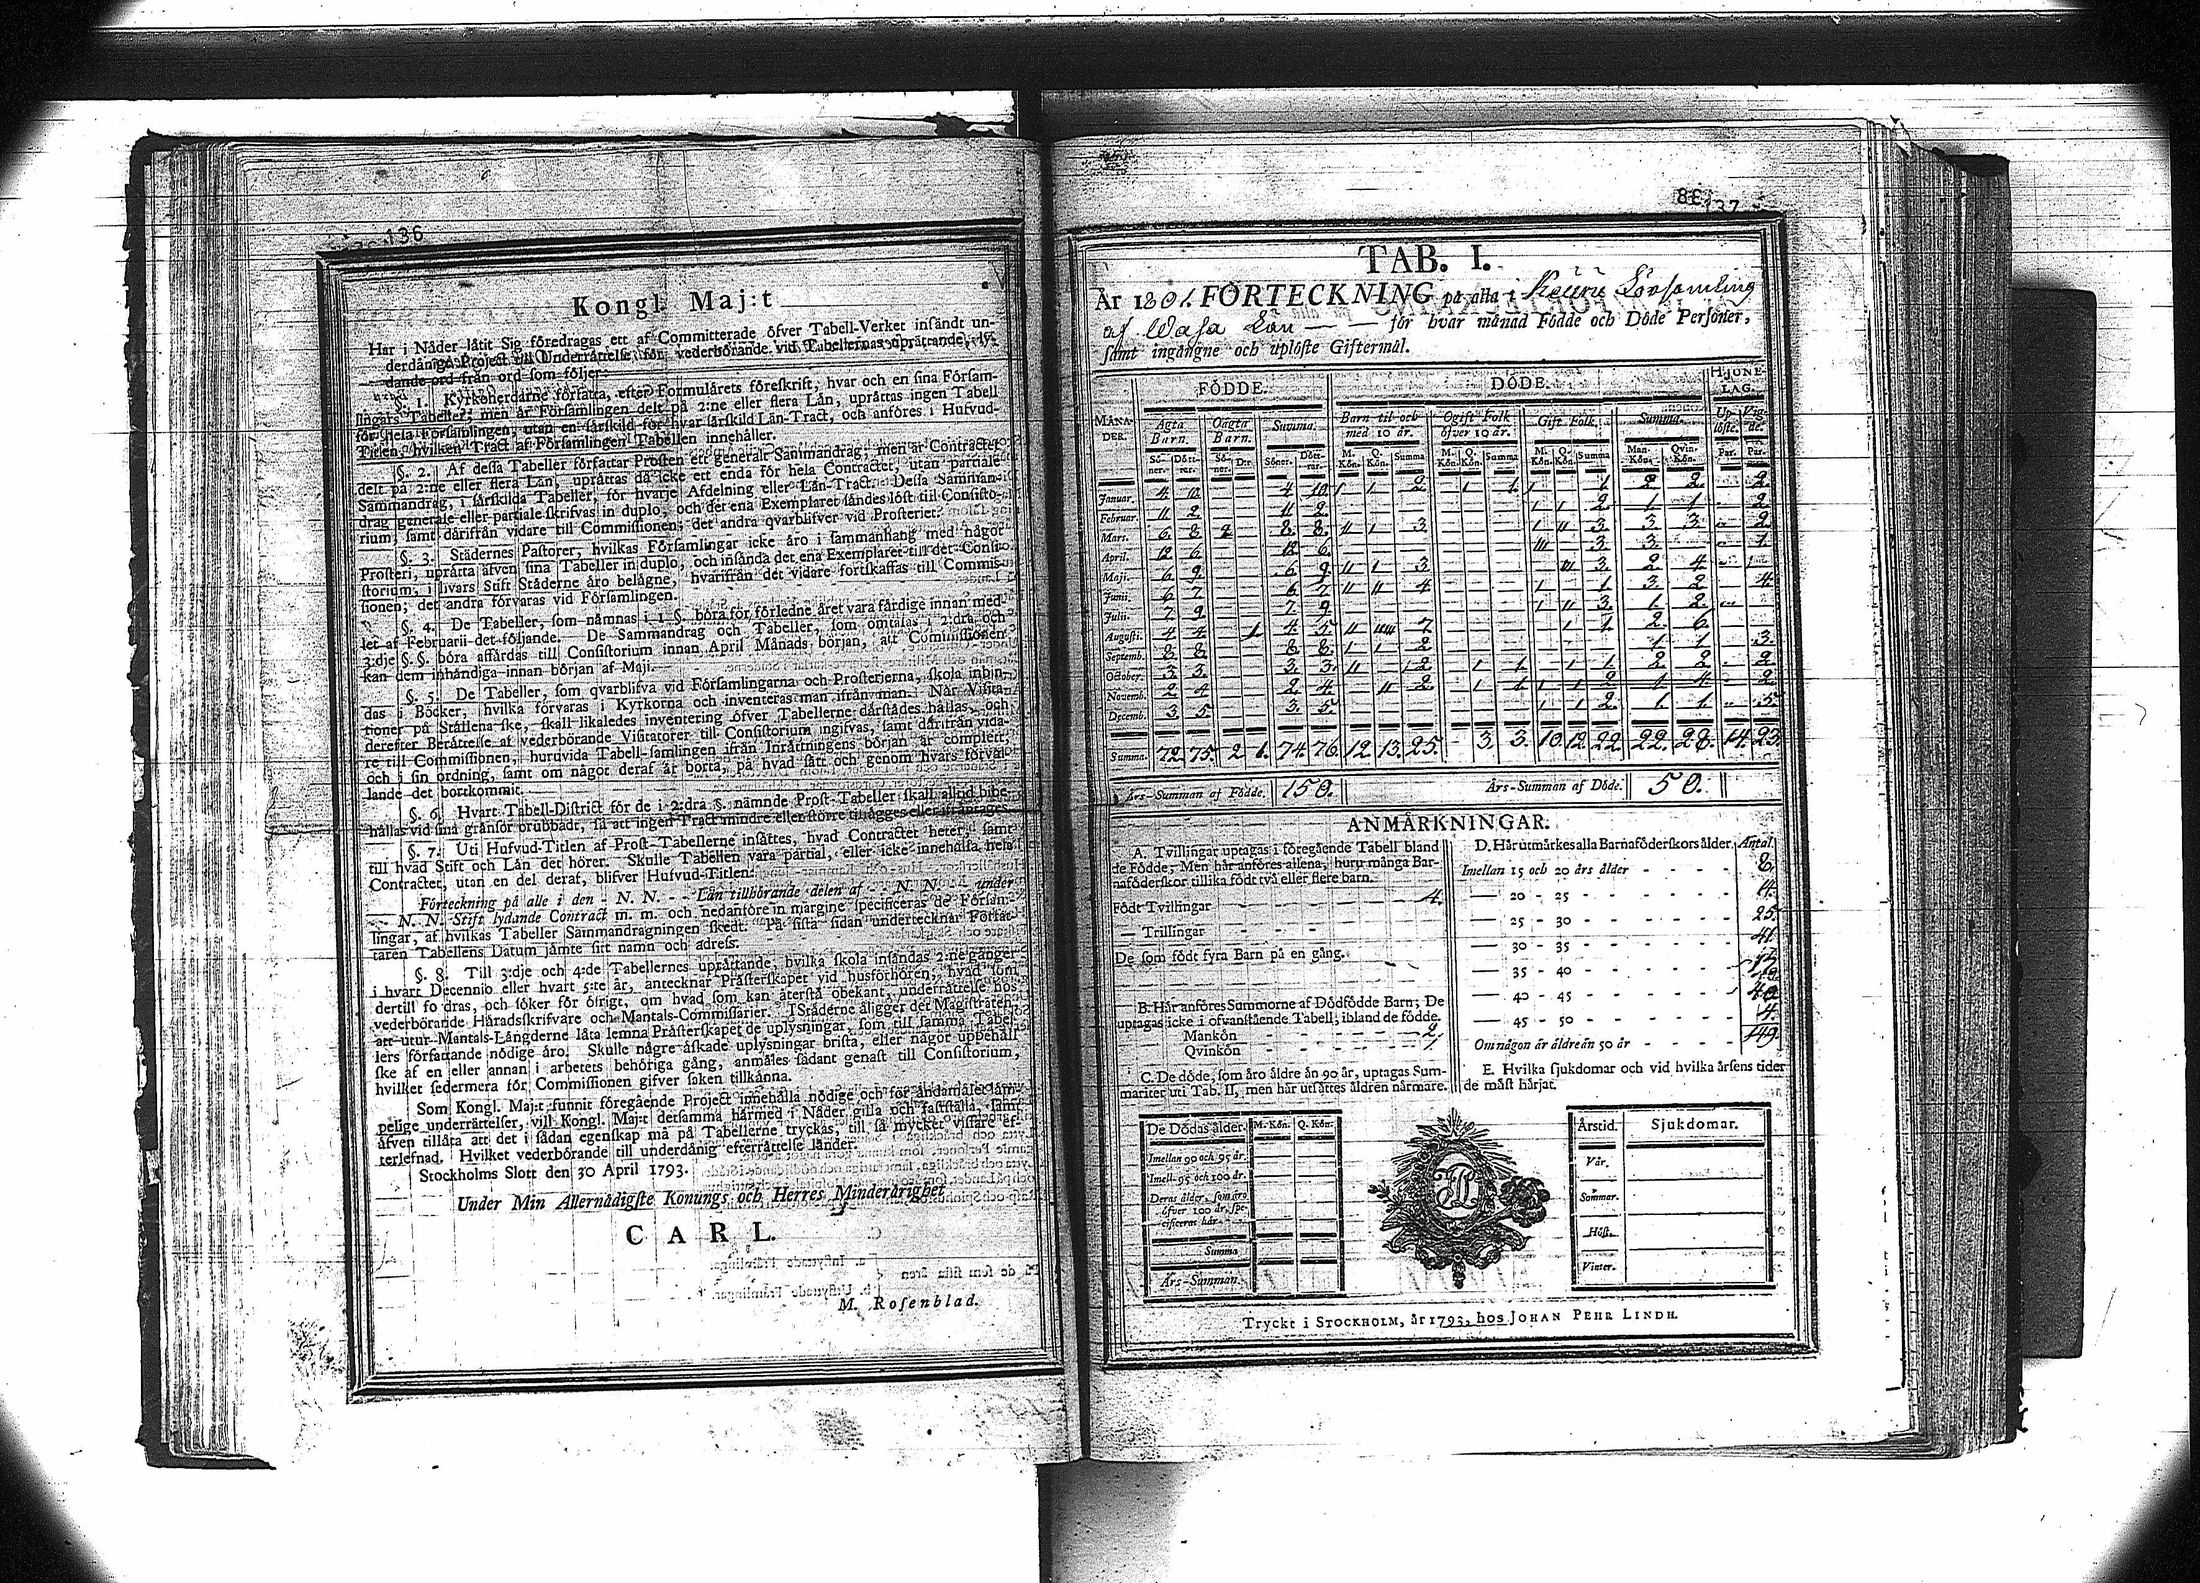 136
Kongl. Maj:t
Har i Nåder låtit Sig föredragas ett af Committerade öfver Tabell-Verket insändt un-
derdånigt Project till Underrättelse för vederbörande vid Tabellernas uprättande, ly-
dande ord från ord som följer:
§. 1. Kyrkoherdarne författa, efter Formulärets föreskrift, hvar och en sina Försam-
lingars Tabeller; men är Församlingen delt på 2:ne eller flera Län, uprättas ingen Tabell
för hela Församlingen, utan en särskild för hvar särskild Län-Tract, och anföres i Hufvud-
Titlen, hvilken Tract af Församlingen Tabellen innehåller.
§. 2. Af dessa Tabeller författar Prosten ett generalt Sammandrag; men är Contractet
delt på 2:ne eller flera Län, uprättas då icke ett enda för hela Contractet, utan partiale
Sammandrag, i särskilda Tabeller, för hvarje Afdelning eller Län-Tract. Dessa Samman-
drag generale eller partiale skrifvas in duplo, och det ena Exemplaret sändes löst till Consisto-
rium, samt därifrån vidare till Commissionen; det andra qvarblifver vid Prosteriet.
§. 3. Städernes Pastorer, hvilkas Församlingar icke äro i sammanhang med något
Prosteri, uprätta äfven sina Tabeller in duplo, och insända det ena Exemplaret till det Consi-
storium, i hvars Stift Städerne äro belägne, hvarifrån det vidare fortskaffas till Commis-
sionen; det andra förvaras vid Församlingen.
§. 4. De Tabeller, som nämnas i 1 §. böra för förledne året vara färdige innan med-
let af Februarii det följande. De Sammandrag och Tabeller, som omtalas i 2:dra och
3:dje §. §. böra affärdas till Consistorium innan April Månads början, att Commissionen
kan dem inhändiga innan början af Maji.
§. 5. De Tabeller, som qvarblifva vid Församlingarna och Prosterierna, skola inbin-
das i Böcker, hvilka förvaras i Kyrkorna och inventeras man ifrån man. När Visita-
tioner på Ställena ske, skall likaledes inventering öfver Tabellerne därstädes hållas, och
derefter Berättelse af vederbörande Visitatorer till Consistorium ingifvas, samt därifrån vida-
re till Commissionen, huruvida Tabell-samlingen ifrån Inrättningens början är complett,
och i sin ordning, samt om något deraf är borta, på hvad sätt och genom hvars förvål-
lande det bortkommit.
§. 6. Hvart Tabell-District för de i 2:dra §. nämnde Prost-Tabeller skall alltid bibe-
hållas vid sina gränsor orubbadt, så att ingen Tract mindre eller större tillägges eller ifråntages.
§. 7. Uti Hufvud-Titlen af Prost-Tabellerne insättes, hvad Contractet heter, samt
till hvad Stift och Län det hörer. Skulle Tabellen vara partial, eller icke innehålla hela
Contractet, utan en del deraf, blifver Hufvud-Titlen:
Förteckning på alle i den - N. N. - - Län tillhörande delen af - - N. N. - - under
- - N. N. Stift lydande Contract m. m. och nedanföre in margine specificeras de Försam-
lingar, af hvilkas Tabeller Sammandragningen skedt. På sista sidan undertecknar Förfat-
taren Tabellens Datum jämte sitt namn och adress.
§. 8. Till 3:dje och 4:de Tabellernes uprättande, hvilka skola insändas 2:ne gånger
i hvart Decennio eller hvart 5:te år, antecknar Prästerskapet vid husförhören, hvad som
dertill fordras, och söker för öfrigt, om hvad som kan återstå obekant, underrättelse hos
vederbörande Häradsskrifvare och Mantals-Commissarier. I Städerne åligger det Magistraten
att utur Mantals-Längderne låta lemna Prästerskapet de uplysningar, som till samma Tabel-
lers författande nödige äro. Skulle någre äskade uplysningar brista, eller något uppehåll
ske af en eller annan i arbetets behöriga gång, anmäles sådant genast till Consistorium,
hvilket sedermera för Commissionen gifver saken tillkänna.
Som Kongl. Maj:t funnit föregående Project innehålla nödige och för ändamålet läm-
pelige underrättelser, vill Kongl. Maj:t detsamma härmed i Nåder gilla och fastställa, samt
äfven tillåta att det i sådan egenskap må på Tabellerne tryckas, till så mycket vissare ef-
terlefnad. Hvilket vederbörande till underdånig efterrättelse länder.
Stockholms Slott den 30 April 1793.
Under Min Allernådigste Konungs och Herres Minderårighet
CARL.
M. Rosenblad.
137
TAB. I.
År 1801. FÖRTECKNING på alla i Keuru Församling
af Wasa Län — — för hvar månad Födde och Döde Personer,
samt ingångne och uplöste Giftermål.
MÅNA-DER. FÖDDE. DÖDE. HJONE-LAG.
Ägta Barn. Oägta Barn. Summa. Barn til och med 10 år. Ogift Folk öfver 10 år. Gift Folk. Summa. Up-löste. Vig-de.
Sö-ner. Dött-rar. Sö-ner. D:r Söner. Dött-rar. M. Kön. Q. Kön. Summa M. Kön. Q. Kön. Summa M. Kön. Q. Kön. Summa Man-Kön. Qvin-Kön. Par. Par.
Januar. 4. 10. 4. 10. 1 1 2. 1 1. 1 1. 2 2. 2.
Februar. 11 2. 11 2. 1 1 2. 1 1 2.
Mars. 6. 8. 2 8. 8. 11 1 3. 1 11 3. 3. 3. 2.
April. 12 6. 12 6. 111 3. 3. 1.
Maji. 6 9. 6. 9. 11 1 3. 111 3. 2. 4.
Junii. 6 7. 6 7. 11 11 4 1 1. 3. 2. 4.
Julii. 7 9. 7. 9. 1 11 3. 1. 2.
Augusti. 4 4. 1 4. 5. 11 7 1 1. 2. 6.
Septemb. 8. 8. 8. 8. 1 1 2. 1 1. 3.
October. 3. 3. 3. 3. 11 2. 1 1. 1 1. 2 2. 2.
Novemb. 2 4. 2. 4. 11 2. 1 1. 1 1 2. 1 4. 2.
Decemb. 3. 5. 3. 5. 1 1 2. 1 1. 5.
Summa. 72. 75. 2 1. 74. 76. 12. 13. 25. - 3. 3. 10 12. 22. 22. 28. 14. 23.
Års-Summan af Födde. 150. Års-Summan af Döde. 50.
ANMÄRKNINGAR.
A. Tvillingar uptagas i föregående Tabell bland
de Födde; Men här anföres allena, huru många Bar-
naföderskor tillika födt två eller flere barn.
Födt Tvillingar - - - 4.
— Trillingar - - -
De som födt fyra Barn på en gång.
B. Här anföres Summorne af Dödfödde Barn; De
uptagas icke i ofvanstående Tabell, ibland de födde.
Mankön - - - 2.
Qvinkön - - - 1
C. De döde, som äro äldre än 90 år, uptagas Sum-
mariter uti Tab. II, men här utsättes åldren närmare.
De Dödas ålder. M. Kön. Q. Kön.
Imellan 90 och 95 år.
Imell. 95 och 100 år.
Deras ålder, som äro
öfver 100 år, spe-
cificeras här. -
Summa
Års-Summan.
D. Här utmärkes alla Barnaföderskors ålder. Antal.
Imellan 15 och 20 års ålder - - - - 8.
— 20 - 25 - - - -
— 25 - 30 - - - - 25.
— 30 - 35 - - - - 41.
— 35 - 40 - - - -
— 40 - 45 - - - -
— 45 - 50 - - - - 4.
Om någon är äldre än 50 år - - - 149.
E. Hvilka sjukdomar och vid hvilka årsens tider
de mäst härjat.
Årstid. Sjukdomar.
Vår.
Sommar.
Höst.
Vinter.
Tryckt i STOCKHOLM, år 1793, hos JOHAN PEHR LINDH.